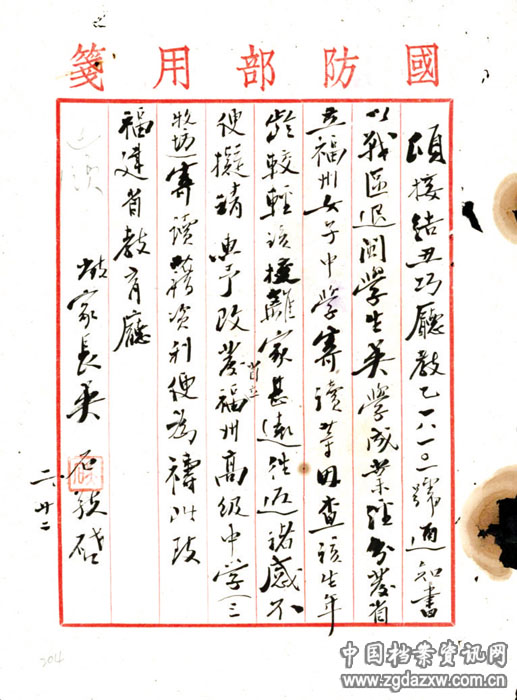 國防部用箋
頃接結丑巧廳教乙一八一〇一號通知書
以戰區退閩學生吳學成業經分發省
立福州女子中學寄讀等因查該生年
齡較輕該校離家甚遠往返諸感不
便擬請惠予改發省立福州高級中學(三
牧坊)寄讀藉資利便為禱此致
福建省教育廳
學生家長吳石敬啓
二 廿二
204
中国档案资讯网
www.zgdazxw.com.cn